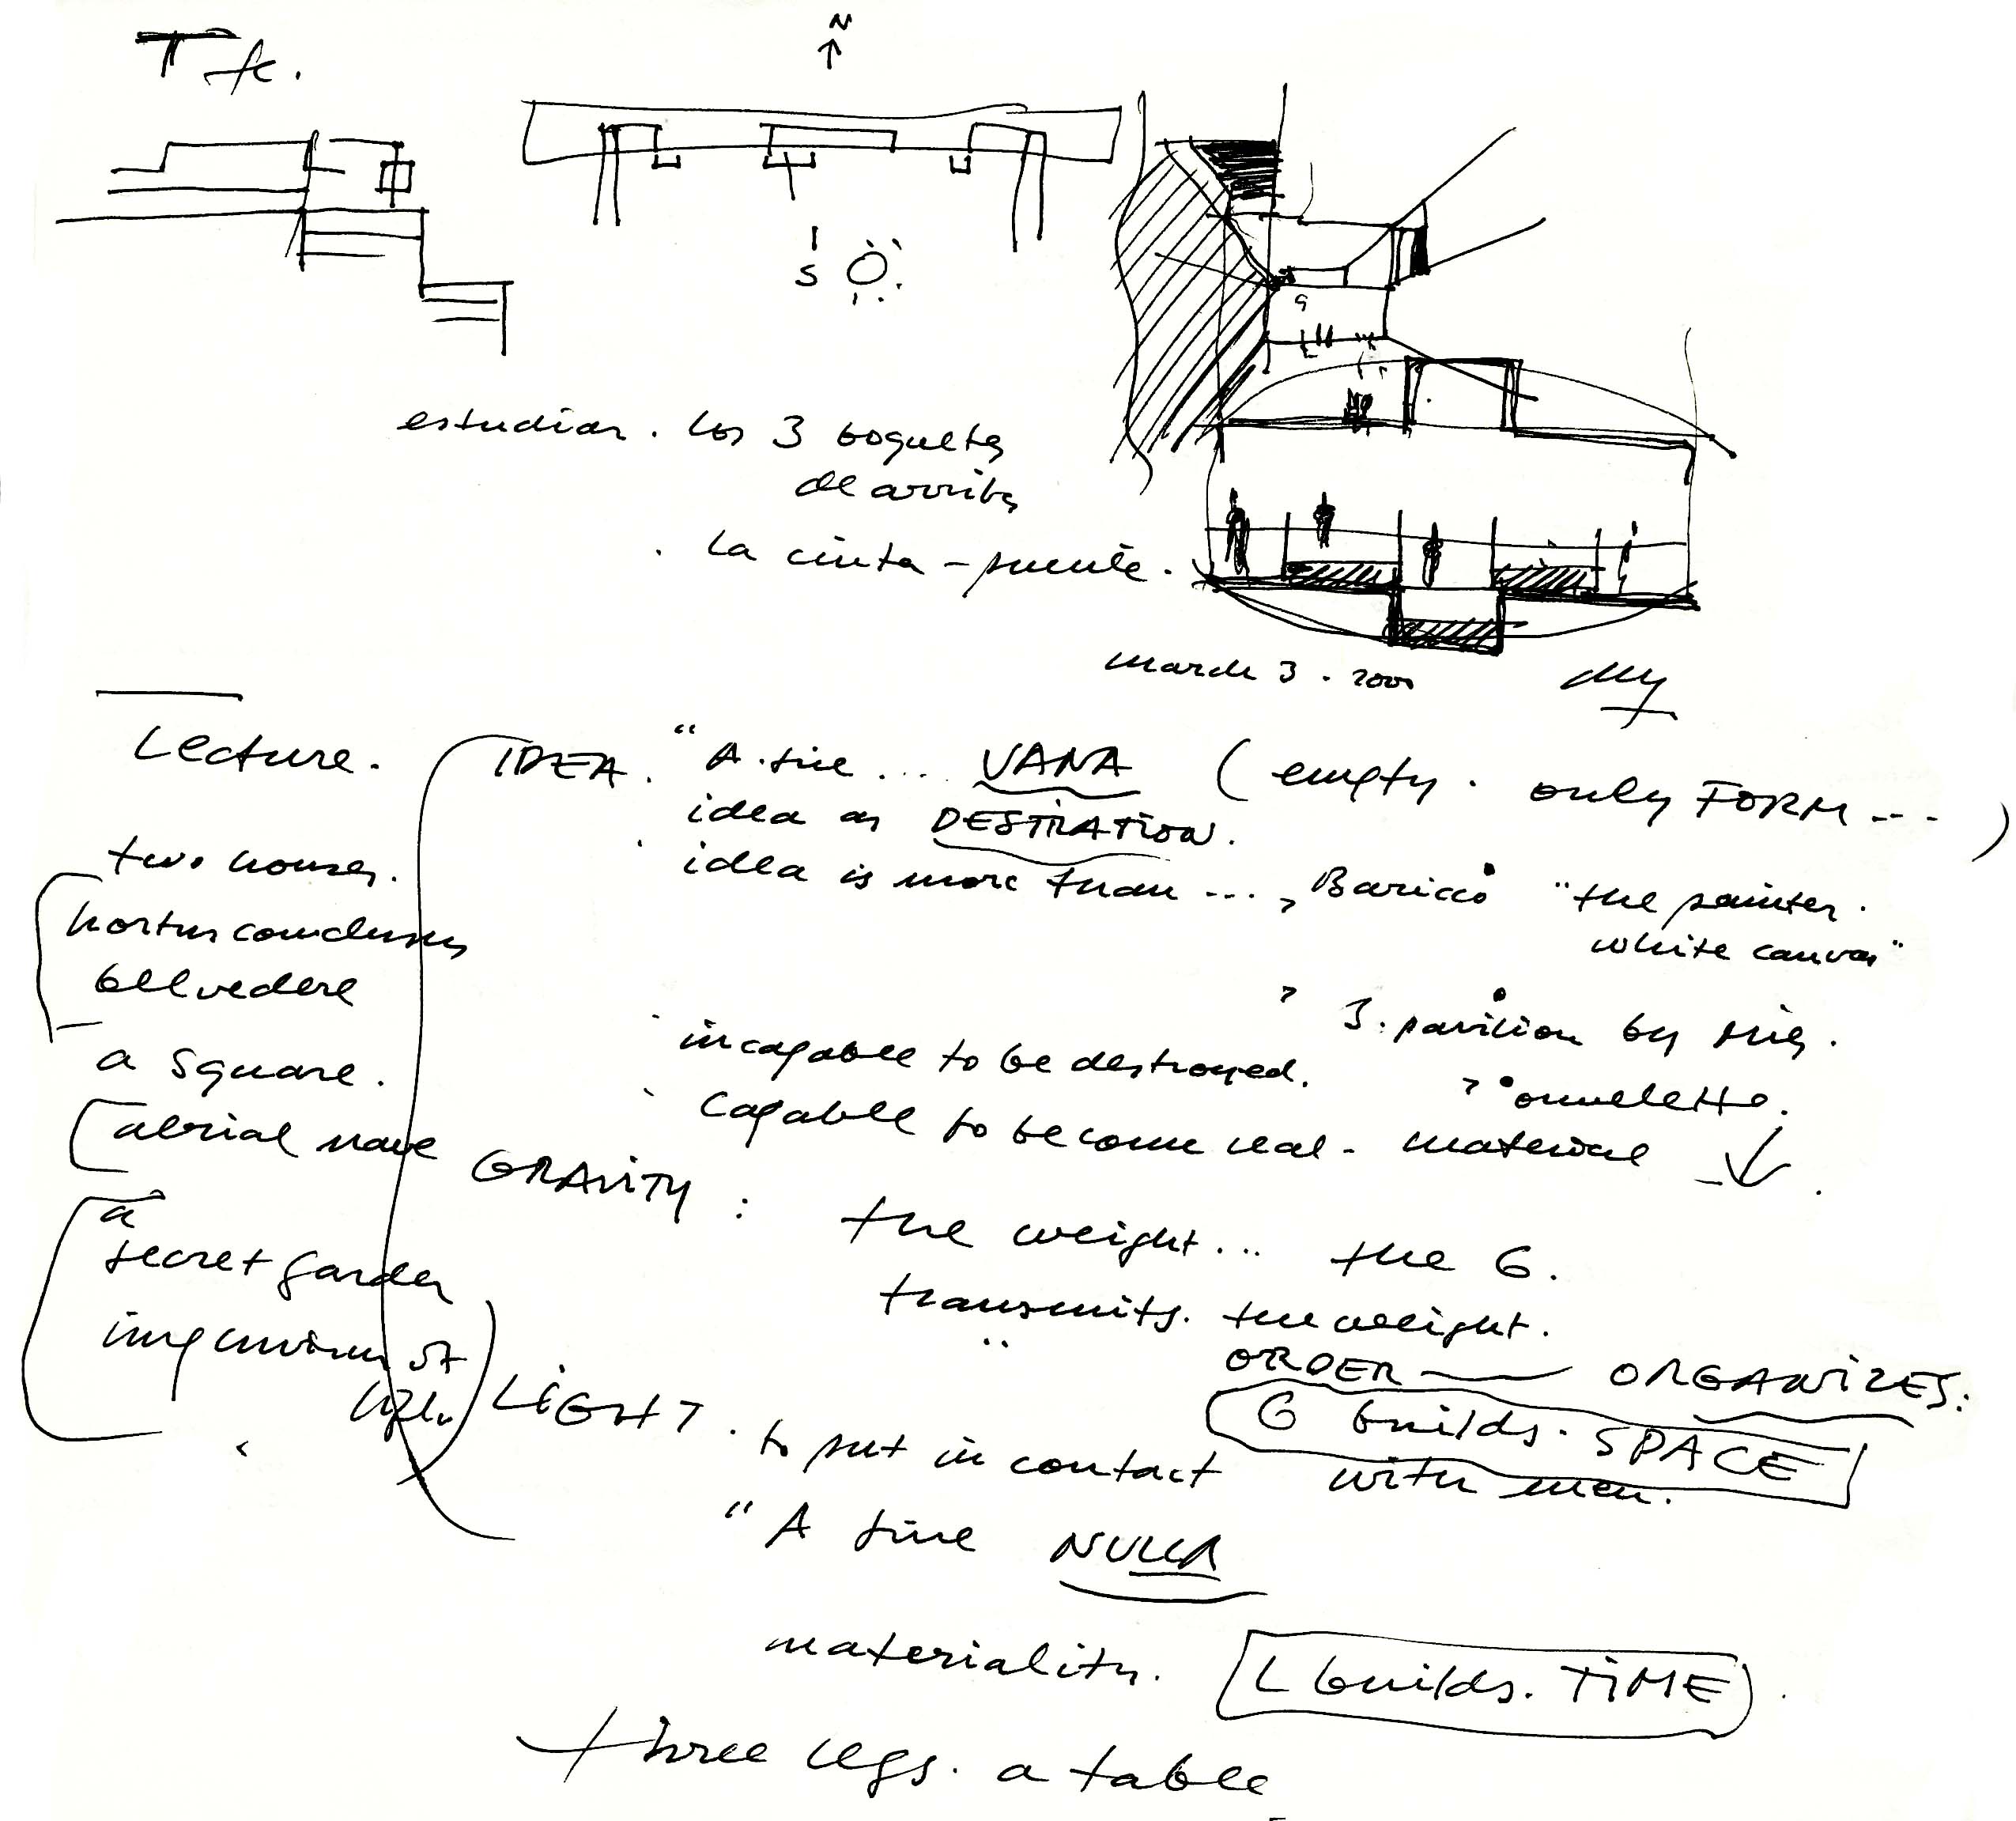 T fc.
N
S
estudiar. los 3 boquetes
de arriba
. La cinta - puente.
March 3. 2000
Lecture.
IDEA. "A. sine.... VANA (empty. only FORM ---)
idea as DESTINATION.
idea is more than ..., Baricco "the painter.
white canvas"
3. pavilion by Mies.
. incapable to be destroyed.
omelette.
. capable to become real - material
two houses.
hortus conclusus
belvedere
a square.
aerial nave
a
secret garden
impluvium of
light
GRAVITY: the weight... the G.
transmits. the weight.
" ORDER — ORGANIZES:
G builds. SPACE
LIGHT. to put in contact with men.
"A sine NULLA
materiality. L builds. TIME.
three legs. a table